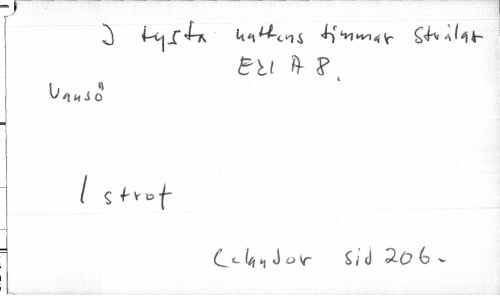 I tysta nattens timmar strålar
EEl A 8.
Vansö
1 strof
Celander sid 206.